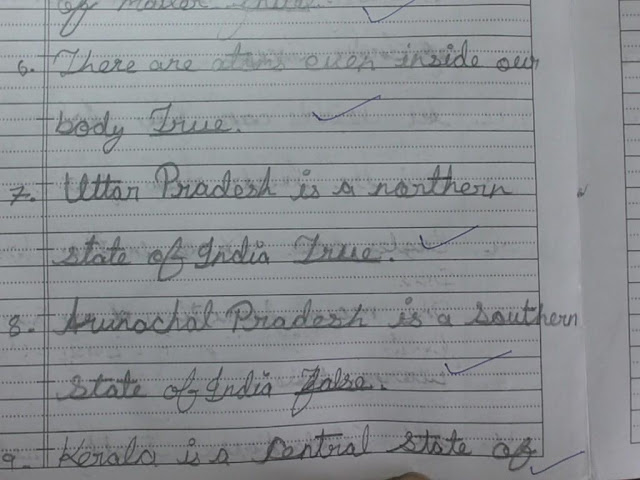 6. There are atoms even inside our
body True.
7. Uttar Pradesh is a northern
state of India True.
8. Arunachal Pradesh is a southern
state of India False.
9. Kerala is a central state of